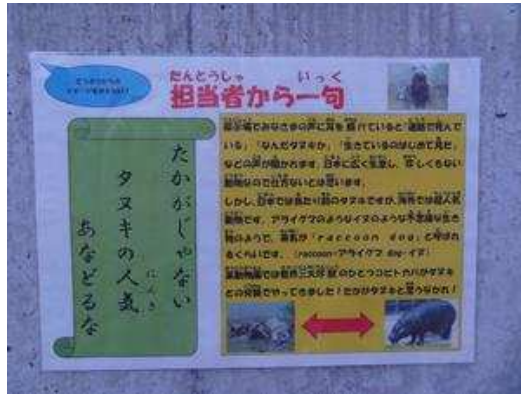 たんとうしゃ いっく
担当者から一句
たかがじゃない
タヌキの人気
にんき
あなどるな
展示場でみなさまの声に耳を傾けていると「道路で死んで
いる」「なんだタヌキか」「生きているのはじめて見た」
などの声が聞かれます。日本に広く生息し、珍しくもない
動物なので仕方ないとは思います。
しかし、日本では当たり前のタヌキですが、海外では超人気
動物です。アライグマのようなイヌのような不思議な生き
物のようで、英名が「raccoon dog」と呼ばれ
るくらいです。(raccoon=アライグマ dog=イヌ)
動物園では世界三大珍獣のひとつコビトカバがタヌキ
との交換でやってきました!たかがタヌキと思うなかれ!